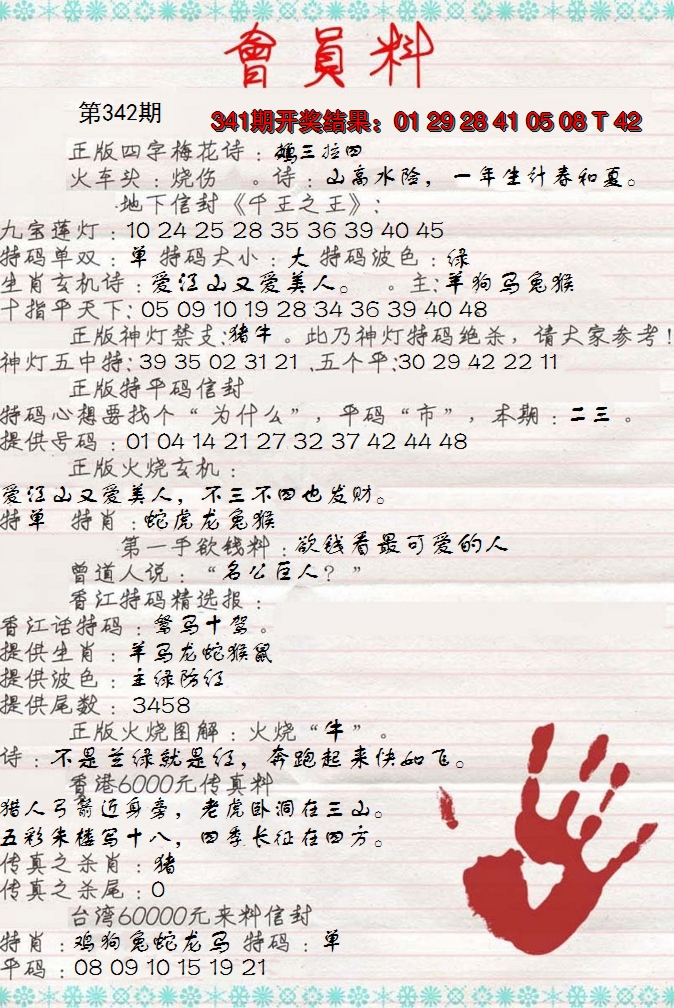 會員料
第342期
341期开奖结果：01 29 28 41 05 08 T 42
正版四字梅花诗：鹅三拉四
火车头：烧伤 。诗：山高水险，一年生计春和夏。
地下信封《千王之王》：
九宝莲灯：10 24 25 28 35 36 39 40 45
特码单双：单 特码大小：大 特码波色：绿
生肖玄机诗：爱江山又爱美人。 。主:羊狗马兔猴
十指平天下: 05 09 10 19 28 34 36 39 40 48
正版神灯禁支:猪牛 。此乃神灯特码绝杀，请大家参考!
神灯五中特: 39 35 02 31 21 .五个平:30 29 42 22 11
正版特平码信封
特码心想要找个“为什么”，平码“市”，本期：二三 。
提供号码：01 04 14 21 27 32 37 42 44 48
正版火烧玄机：
爱江山又爱美人，不三不四也发财。
特单 特肖：蛇虎龙兔猴
第一手欲钱料：欲钱看最可爱的人
曾道人说：“名公巨人？”
香江特码精选报：
香江话特码：驽马十驾。
提供生肖：羊马龙蛇猴鼠
提供波色：主绿防红
提供尾数：3458
正版火烧图解：火烧“牛”。
诗：不是兰绿就是红，奔跑起来快如飞。
香港6000元传真料
猎人弓箭近身旁，老虎卧洞在三山。
五彩朱楼写十八，四季长征在四方。
传真之杀肖：猪
传真之杀尾：0
台湾60000元来料信封
特肖：鸡狗兔蛇龙马 特码：单
平码：08 09 10 15 19 21